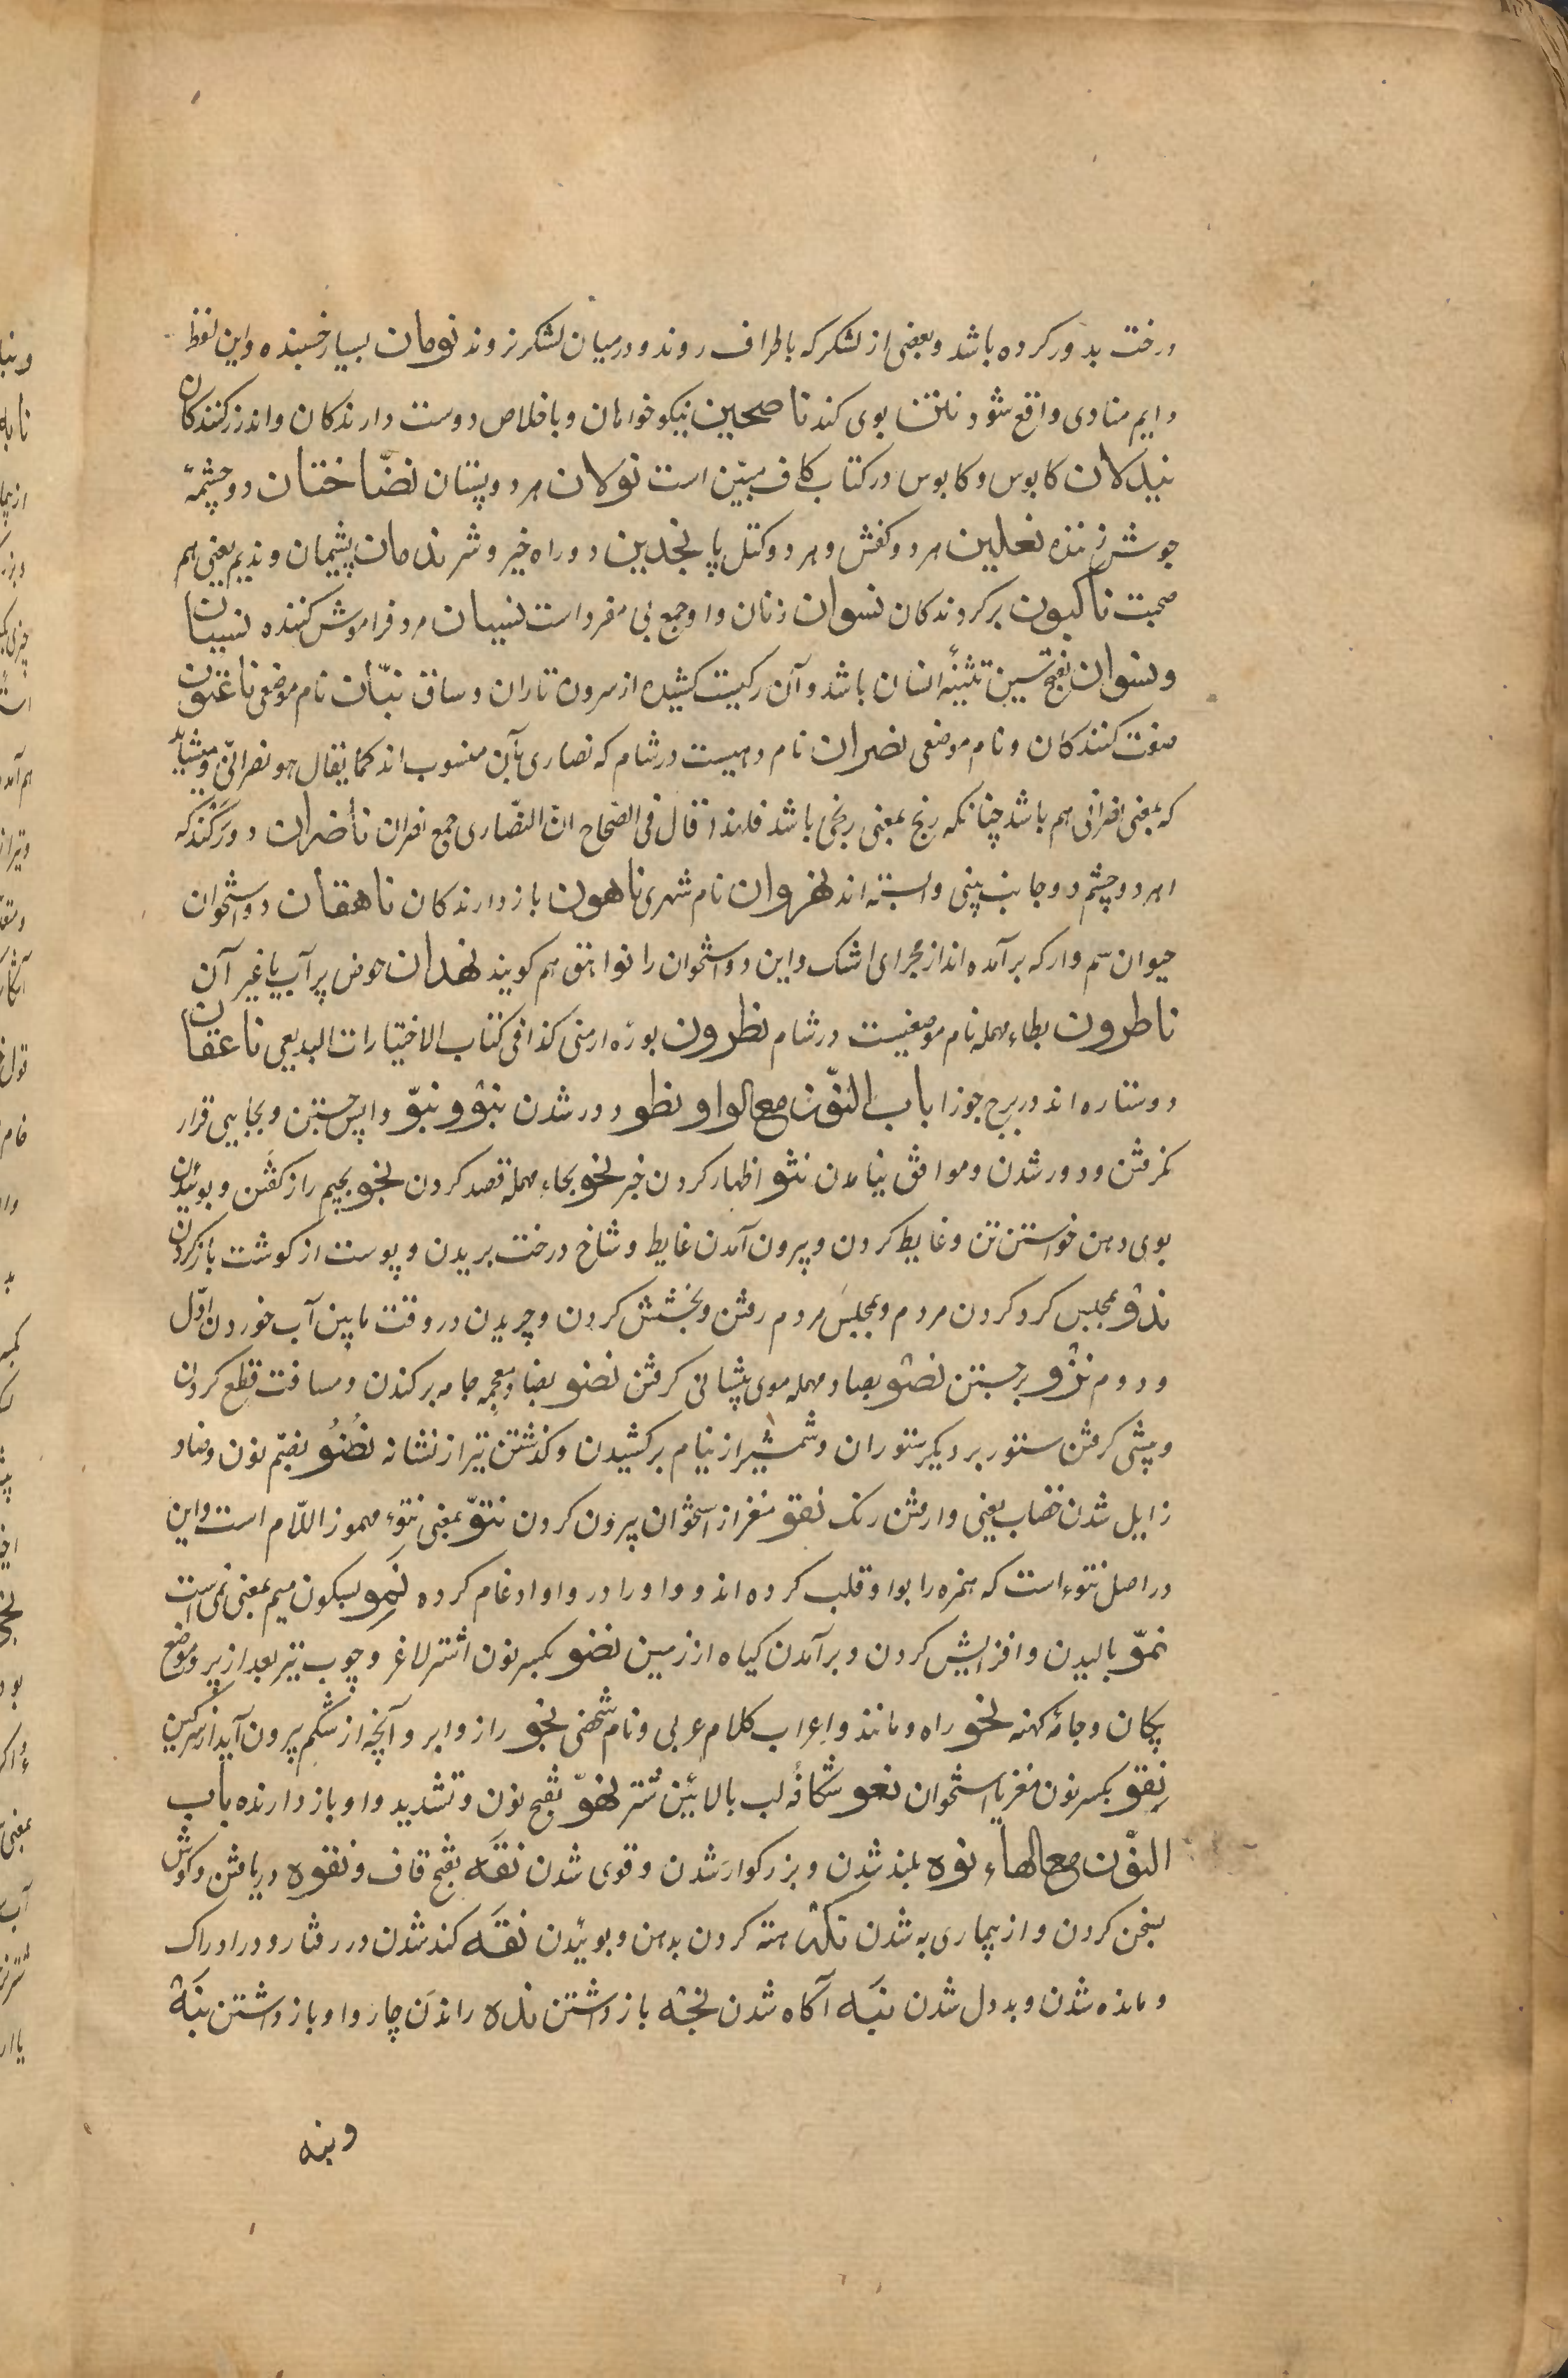 درخت بدور کرده باشد و بعضی از لشکر که باطراف روند و در میان لشکر نروند نومان بسیار خسبنده و این لفظ
دایم منادی واقع شود نتن بوی کند ناصحین نیکو خواهان و باخلاص دوست دارندکان و اندرز کنندکان
نیدلان کابوس و کابوس در کتاب کاف مبیّن است نولان هر دو پستان نضّاختان دو چشمهٔ
جوش زننده نعلین هر دو کفش و هر دو کتل پا نجدین دو راه خیر و شر ندمان پشیمان و ندیم یعنی هم
صحبت ناکبون برکردندکان نسوان زنان و او جمع بی مفرد است نسیان مرد فراموش کننده نسیان
و نسوان بفتح سین تثنیهٔ انسان باشد و آن رکیست کشیده از سرون تا ران و ساق نبّان نام موضعی ناعتون
صفت کنندکان و نام موضعی نصران نام دهیست در شام که نصاری بآن منسوب اند کما یقال هو نصرانّی و میشاید
که بمعنی نصرانی هم باشد چنانکه رنج بمعنی رنجی باشد فلهذا قال فی الصّحاح انّ النّصاری جمع نصران ناضران دو رکند که
اهر دو چشم دو جانب بینی وابسته اند نهروان نام شهری ناهون باز دارندکان ناهقان دو استخوان
حیوان سم دار که برآمده اند از مجرای اشک و این دو استخوان را نواهق هم کویند نهدان حوض پر آب یا غیر آن
ناطرون بطاء مهمله نام موضعیست در شام نطرون بورهٔ ارمنی کذا فی کتاب الاختیارات البدیعی ناعقان
دو ستاره اند در برج جوزا باب النّون مع الواو نطو دور شدن نبو و نبوّ واپس جستن و بجایی قرار
نکرفتن و دور شدن و موافق نیامدن نثو اظهار کردن خبر نحو بحاء مهمله قصد کردن نجو بجیم راز کفتن و بوئیدن
بوی دهن خواستن تن و غایط کردن و بیرون آمدن غایط و شاخ درخت بریدن و پوست از کوشت باز کردن
ندو بمجلس کرد کردن مردم و بمجلس مردم رفتن و بخشش کردن و چریدن در وقت مابین آب خوردن اوّل
و دوم نزو برجستن نصو بصاد مهمله موی پیشانی کرفتن نضو بضاد معجمه جامه برکندن و مسافت قطع کردن
و پیشی کرفتن ستور بر دیکر ستوران و شمشیر از نیام برکشیدن و کذشتن تیر از نشانه نُضُوّ بضم نون و ضاد
زایل شدن خضاب یعنی وا رفتن رنک نقو مغز از استخوان بیرون کردن نتوّ بمعنی نتوء مهموز اللّام است و این
در اصل نتوء است که همزه را بواو قلب کرده اند و واو را در واو ادغام کرده نمو بسکون میم بمعنی نمی است
نموّ بالیدن و افزایش کردن و برآمدن کیاه از زمین نضو بکسر نون اشتر لاغر و چوب تیر بعد از پر و موضع
پیکان و جامهٔ کهنه نحو راه و مانند و اعراب کلام عربی و نام شخصی نجو راز و ابر و آنچه از شکم بیرون آید از سرکین
نِقو بکسر نون مغز یا استخوان نعو شکافهٔ لب بالائین شتر نهوّ بفتح نون و تشدید واو باز دارنده باب
النّون مع الهاء نوه بلند شدن و بزرکوار شدن و قوی شدن نقَه بفتح قاف و نقوه دریافتن و کوش
بسخن کردن و از بیماری به شدن نکه هته کردن بدهن و بوئیدن نفَه کند شدن در رفتار و در ادراک
و مانده شدن و بد دل شدن نبَه آکاه شدن نجه باز داشتن نده راندن چاروا و باز داشتن نبَه
و بنه